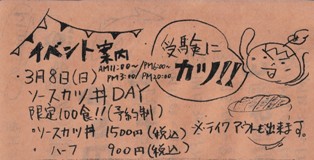 イベント案内
AM11:00〜 / PM6:00〜
PM3:00 / PM20:00
受験に
カツ!!
・3月8日(日)
ソースカツ丼DAY
限定100食!!(予約制)
・ソースカツ丼 1500円(税込)
・ハーフ 900円(税込)
※テイクアウトも出来ます。